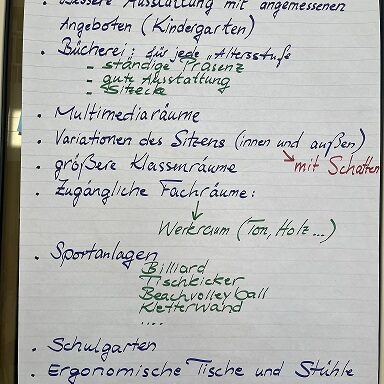 . Bessere Ausstattung mit angemessenen
Angeboten (Kindergarten)
. Bücherei: für jede „Altersstufe
- ständige Präsenz
- gute Ausstattung
- Sitzecke
. Multimediaräume
. Variationen des Sitzens (innen und außen)
mit Schatten
. größere Klassenräume
. Zugängliche Fachräume:
Werkraum (Ton, Holz ...)
. Sportanlagen
Billiard
Tischkicker
Beachvolleyball
Kletterwand
....
. Schulgarten
. Ergonomische Tische und Stühle